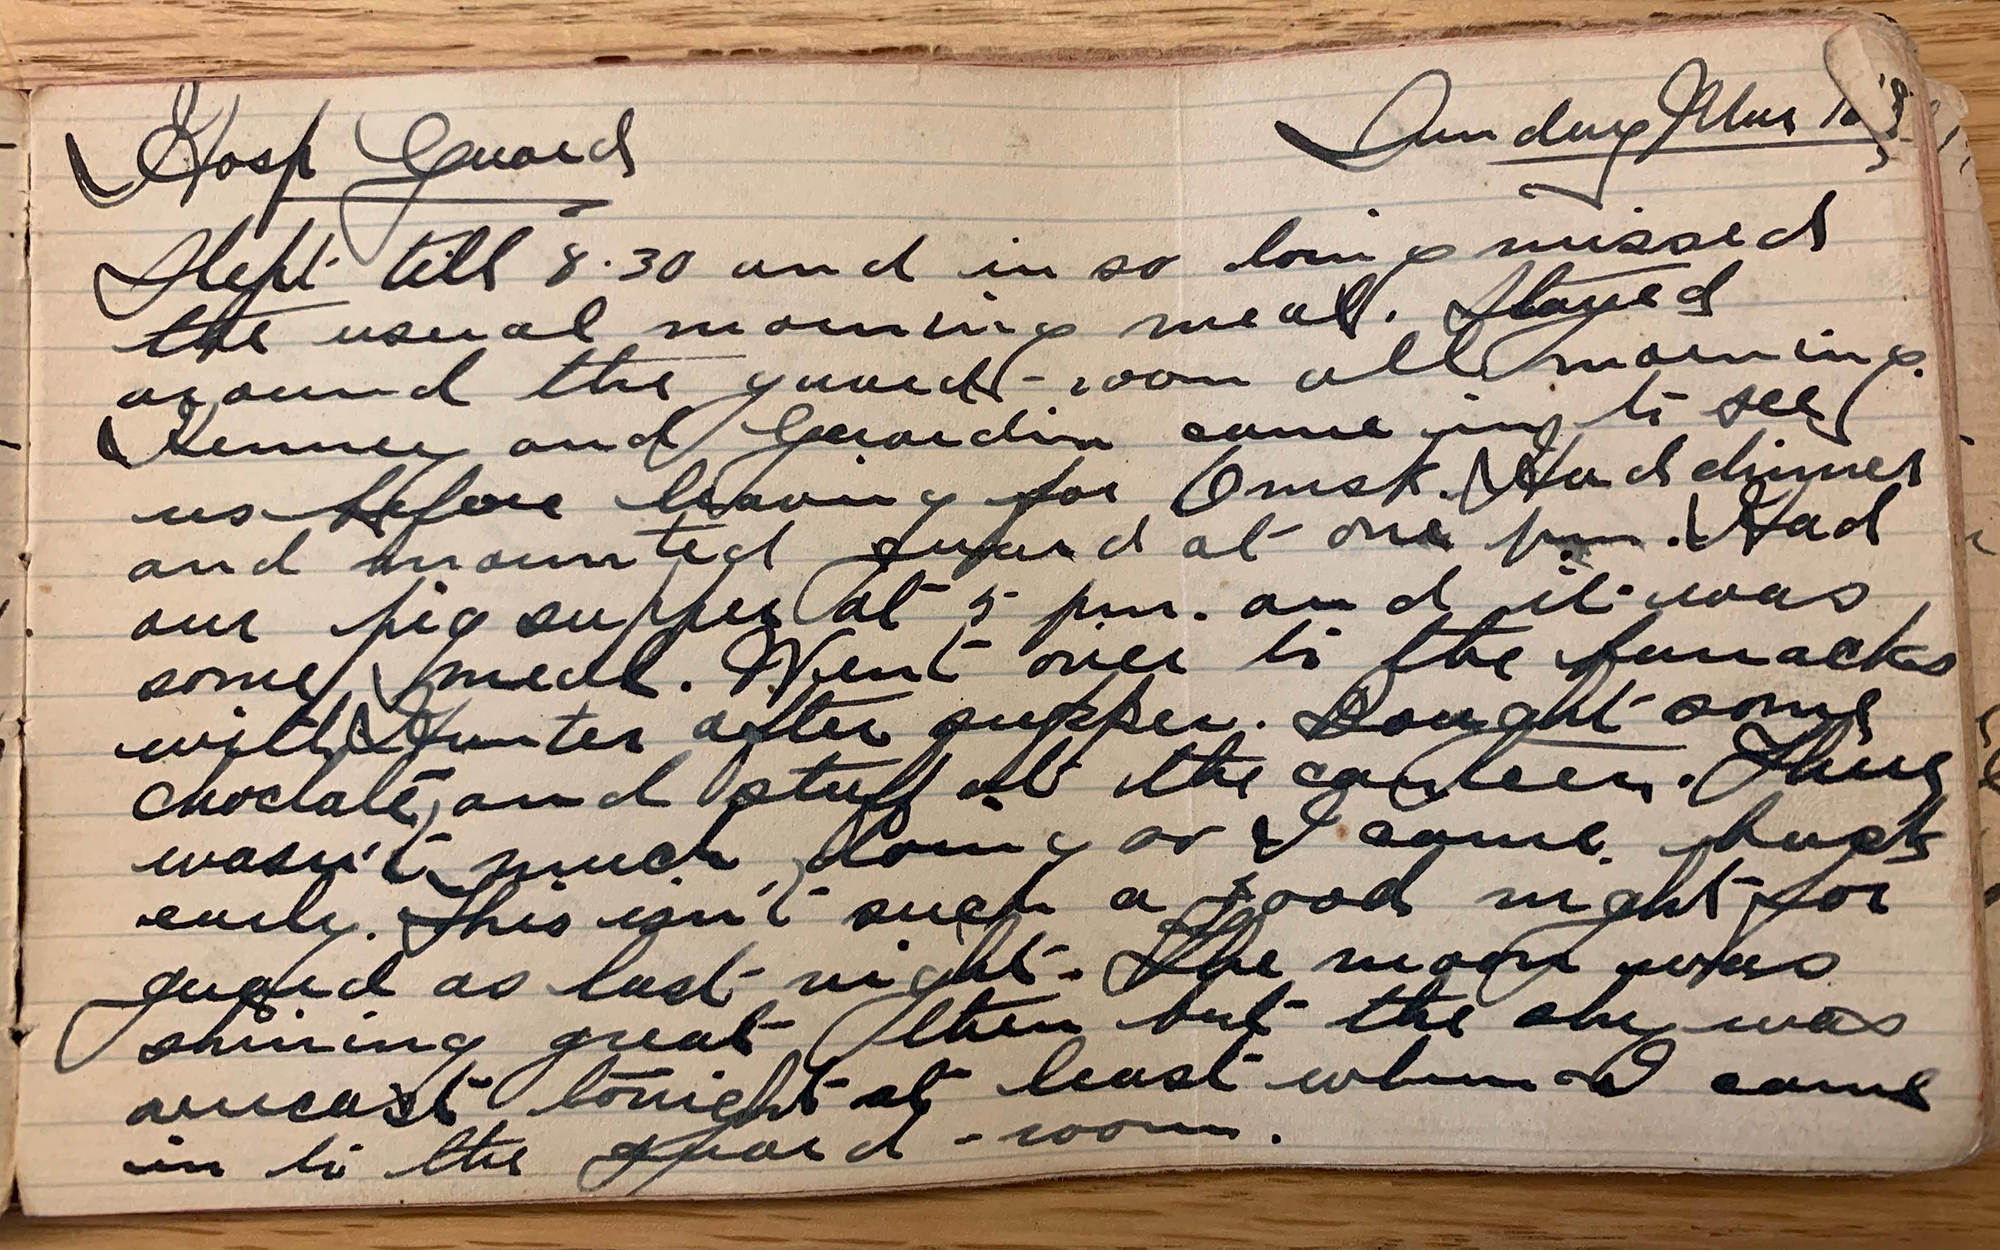 Hosp Guard Sunday Mar 16
Slept till 8.30 and in so doing missed
the usual morning meal. Stayed
around the guard-room all morning.
and Girardin came in to see
us before leaving for Omsk. Had dinner
and mounted guard at one p.m. Had
our big supper at 5 p.m. and it was
some meal. Went over to the barracks
with Hunter after supper. Bought some
choclate and stuff at the canteen. There
wasn't much doing so I came back
early. This isn't such a good night for
guard as last night. The moon was
shining great then but the sky was
overcast tonight at least when I came
in to the guard-room.